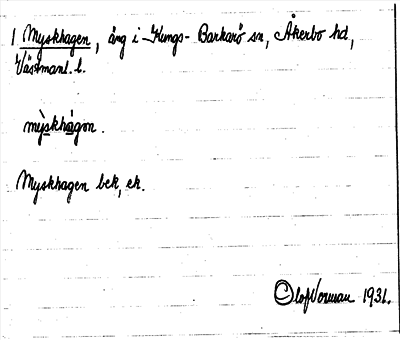 1 Myskhagen, äng i Kungs-Barkarö sn, Åkerbo hd,
Västmanl. l.
mỳskhàgon.
Myskhagen bek, ek.
Olof Norman 1931.